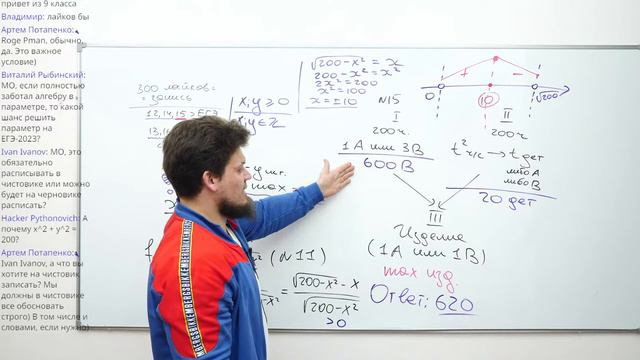 привет из 9 класса
Владимир: лайков бы
Артем Потапенко:
Roge Pman, обычно,
да. Это важное
условие)
Виталий Рыбинский:
МО, если полностью
заботал алгебру в
параметре, то какой
шанс решить
параметр на
ЕГЭ-2023?
Ivan Ivanov: МО, это
обязательно
расписывать в
чистовике или можно
будет на черновике
расписать?
Hacker Pythonovich: А
почему x^2 + y^2 =
200?
Артем Потапенко:
Ivan Ivanov, а что вы
хотите на чистовик
записать? Мы
должны в чистовике
все обосновать
строго) В том числе и
словами, если нужно)
300 лайков =
= запись
12,14,15 > ЕГЭ
x;y ≥ 0
x;y ∈ Z
√200-x² = x
200-x² = x²
2x² = 200
x² = 100
x = ±10
N15
I
200ч.
1А или 3В
600 В
0
10
√200
+
−
II
200ч
t² ч/с → t дет
либо А
либо В
20 дет
III
Изделие
(1А или 1В)
max изд.
Ответ: 620
max
(N11)
= √200-x² - x
√200-x²
>0
BIKKEMBERGS